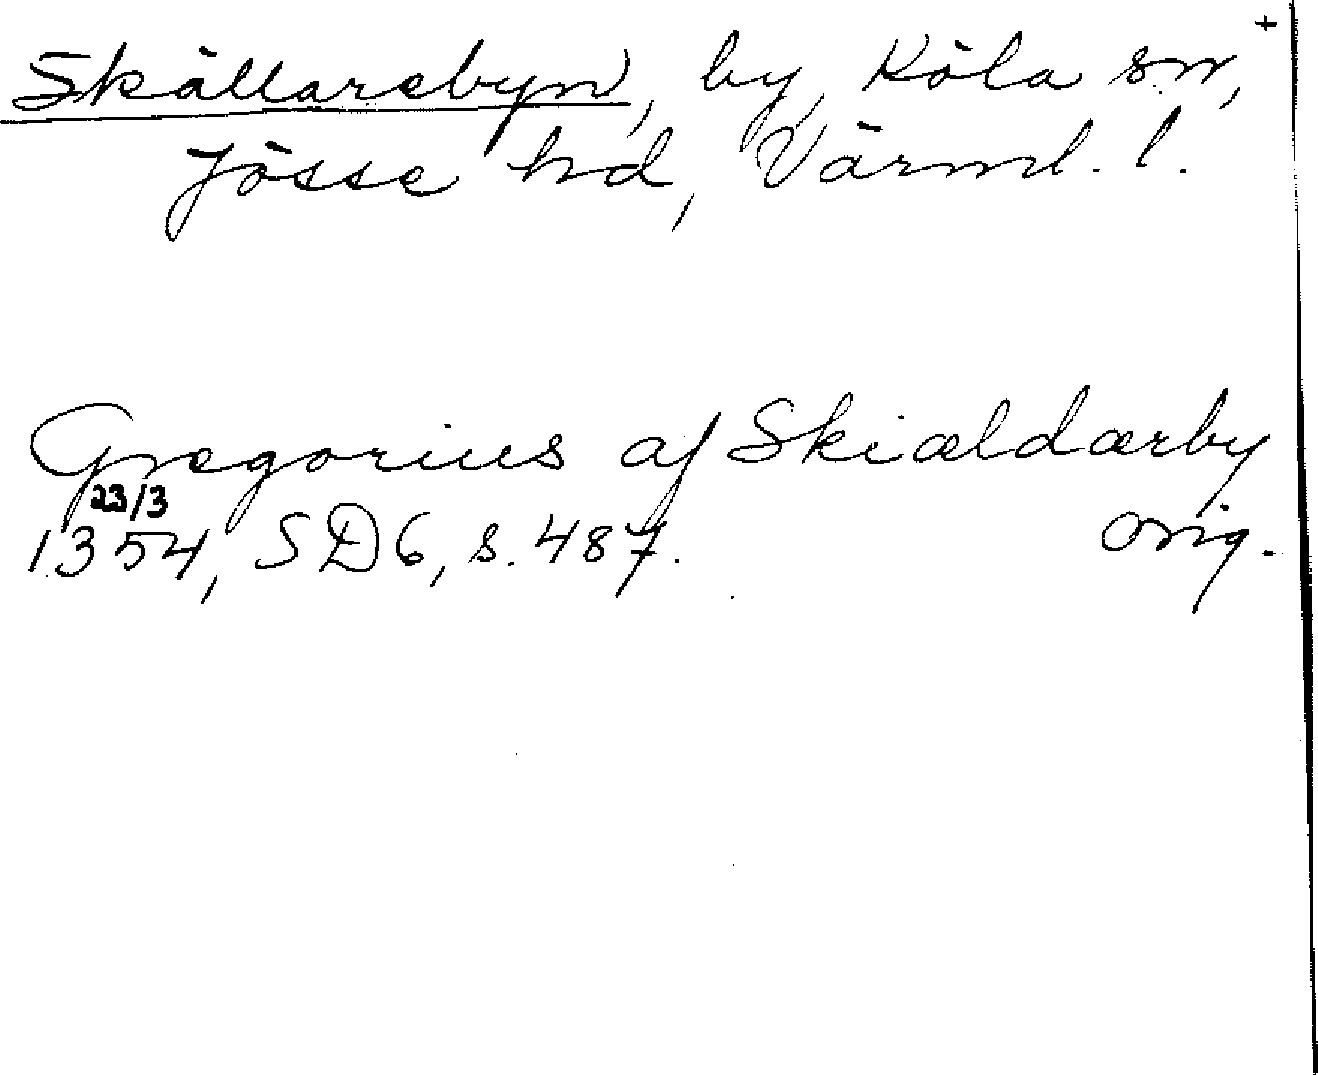 Skällarebyn, by, Köla sn, +
Jösse hd, Värml. l.
Gregorius af Skiældærby
23/3
1354, SD 6, s. 487. orig.